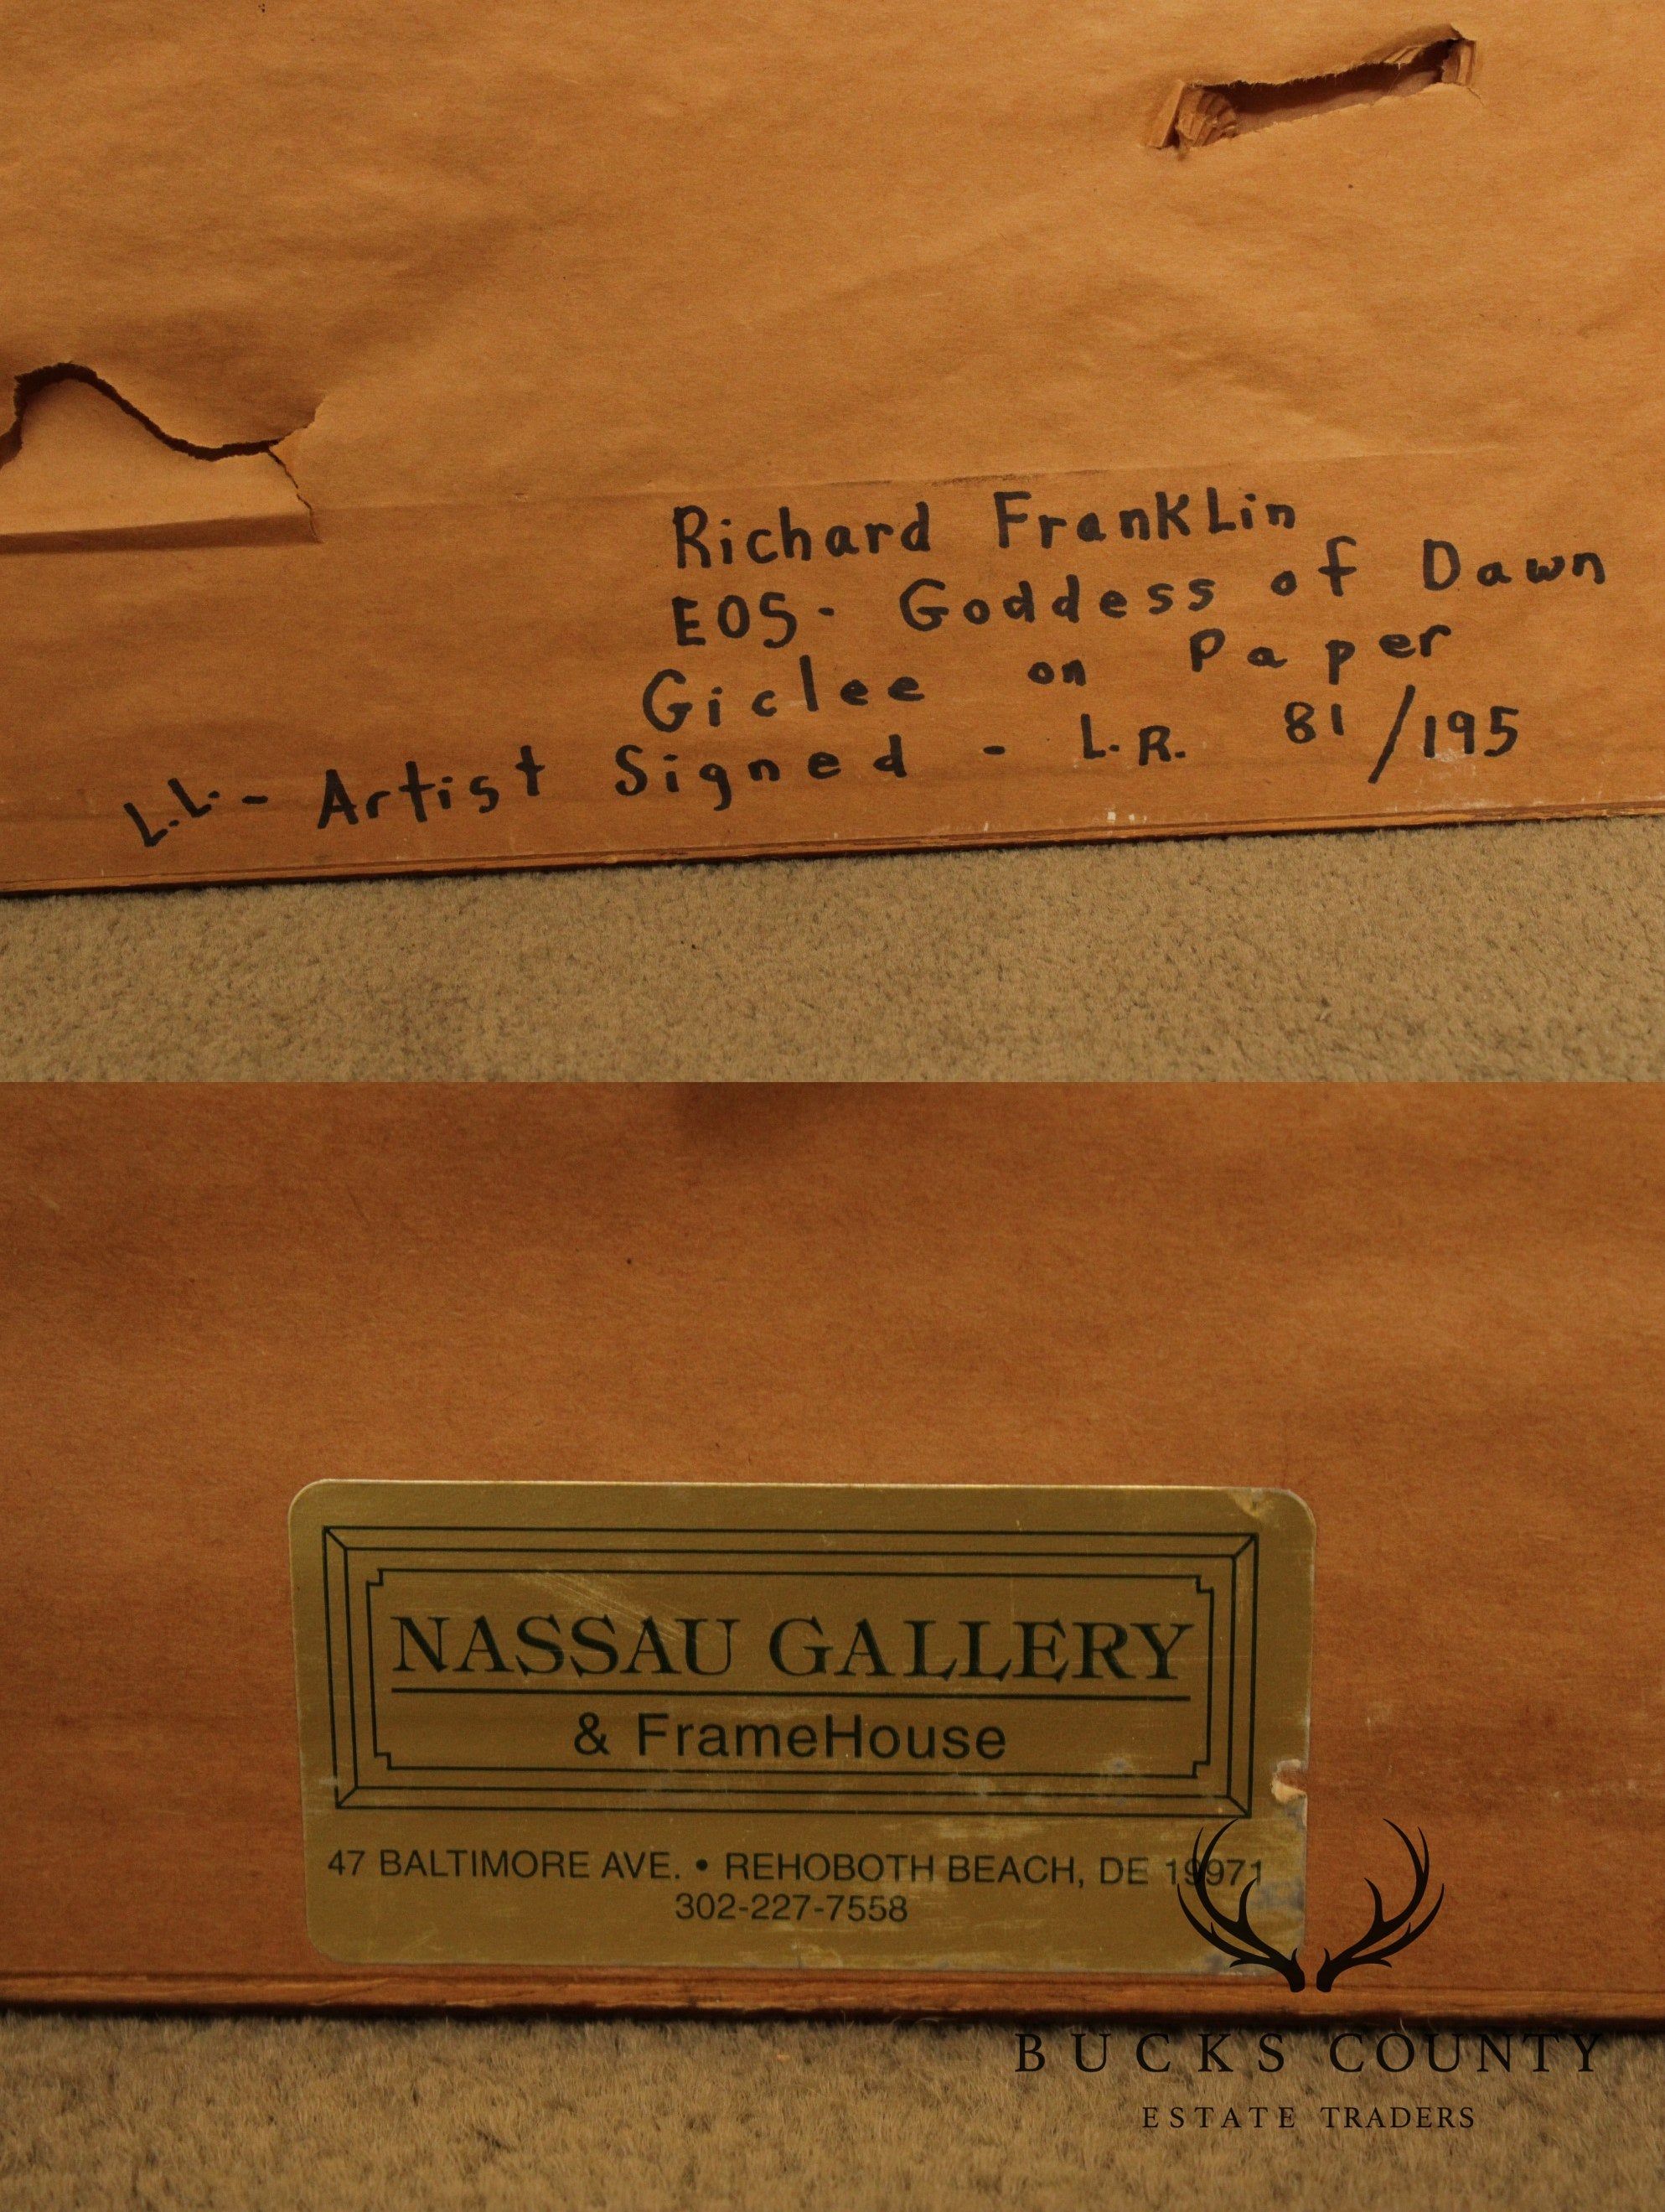 Richard FranKLin
EOS- Goddess of Dawn
Giclee on Paper
L.L.- Artist Signed - L.R. 81/195
NASSAU GALLERY
& FrameHouse
47 BALTIMORE AVE. • REHOBOTH BEACH, DE 19971
302-227-7558
BUCKS COUNTY
ESTATE TRADERS